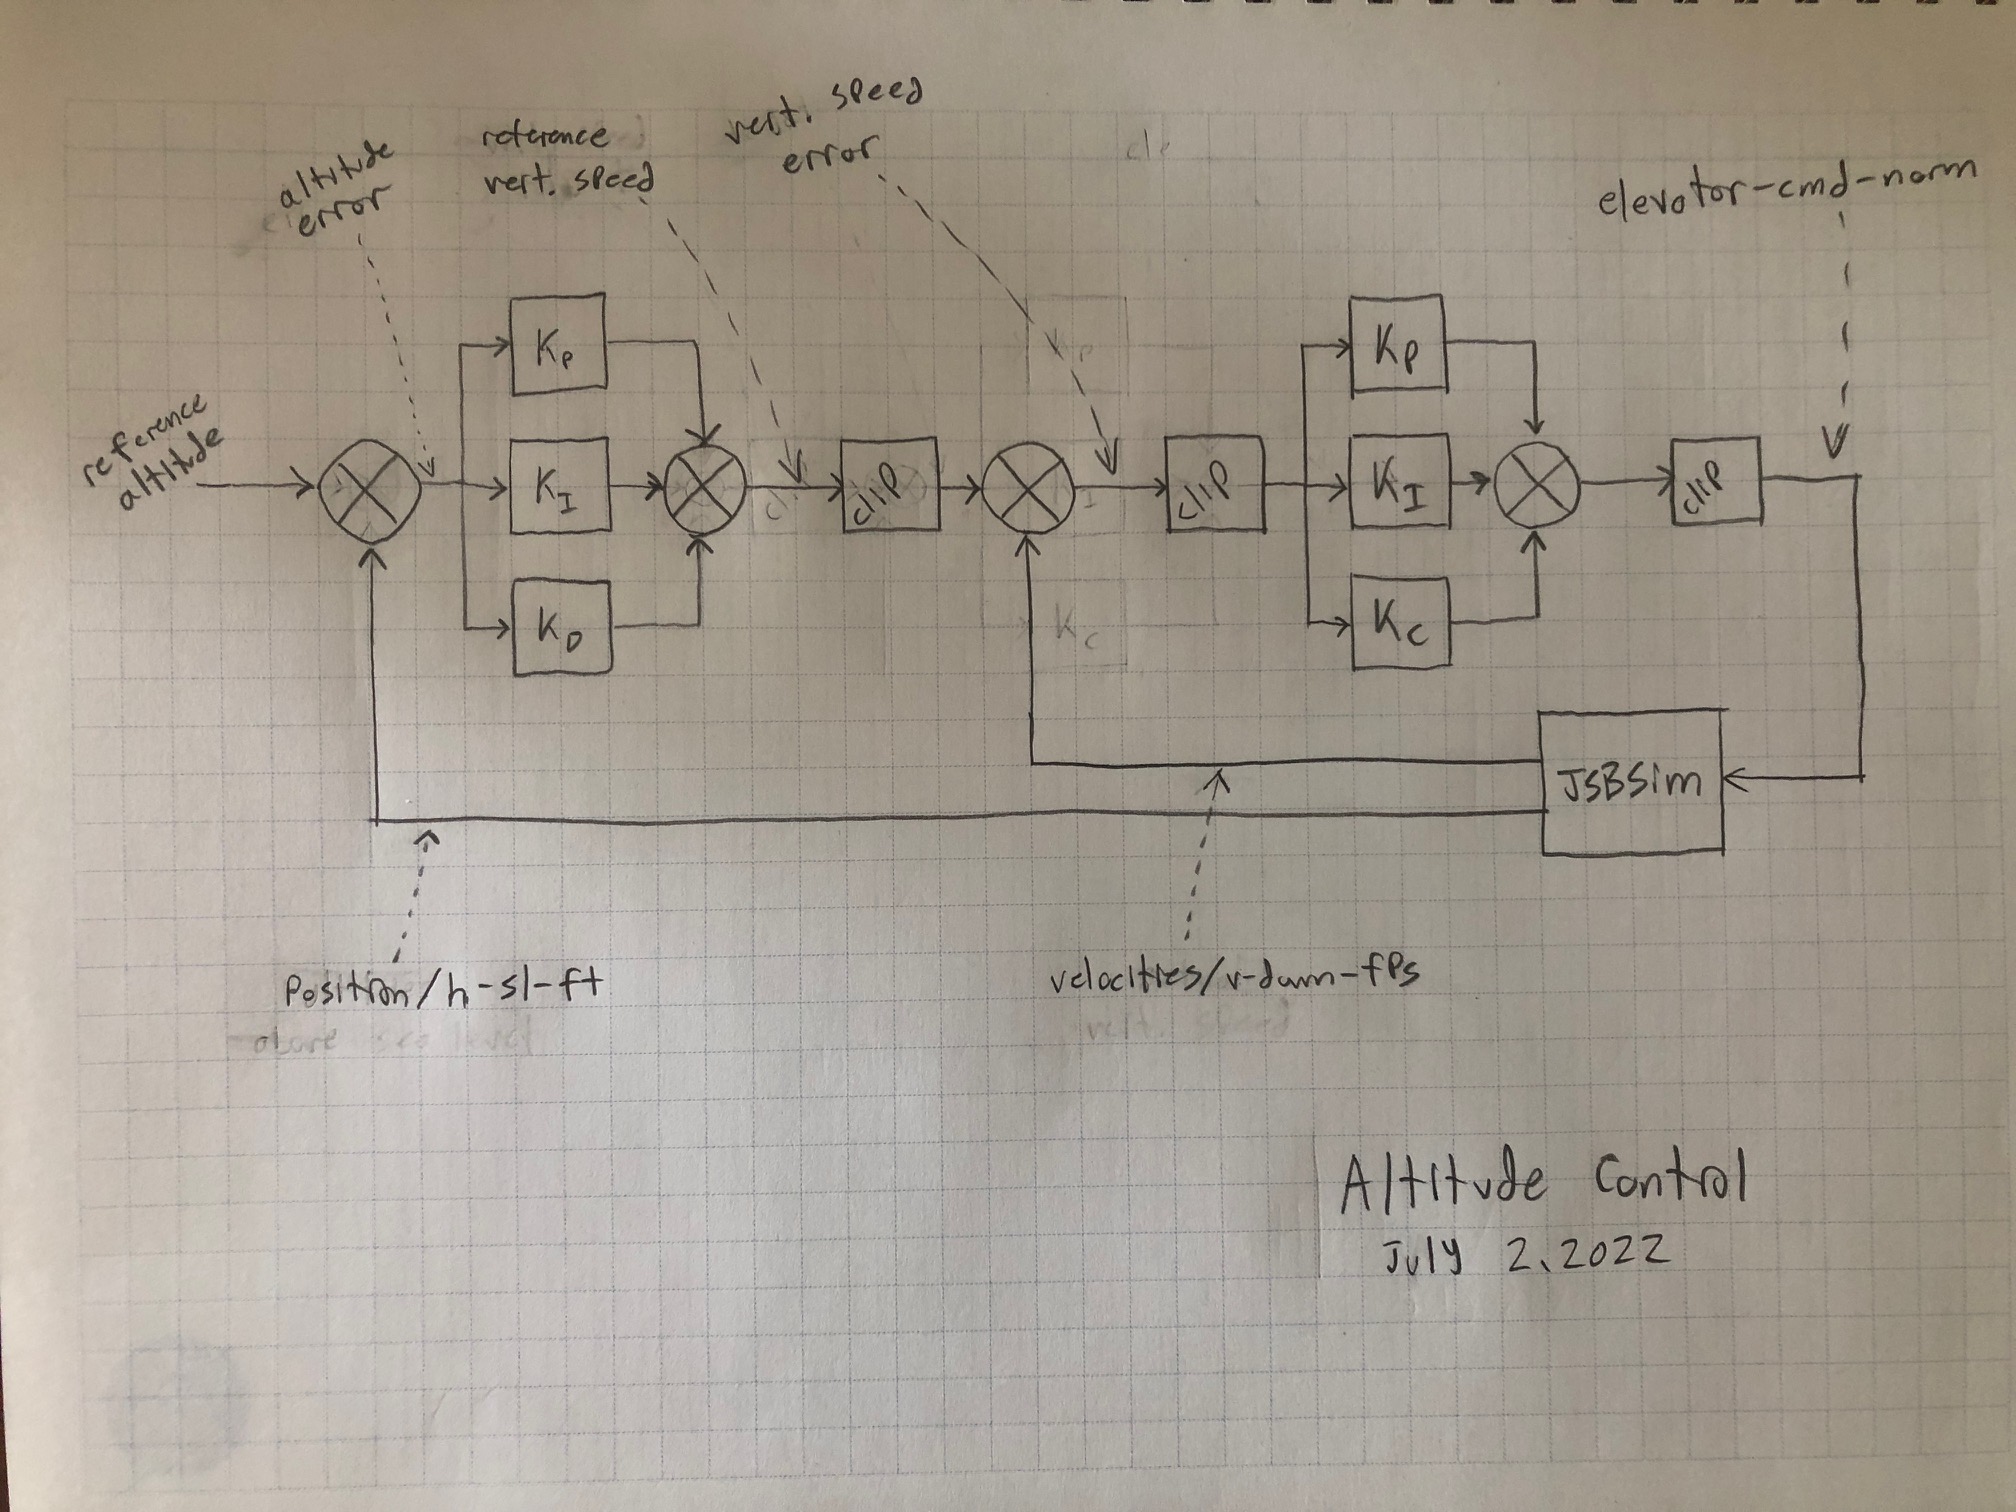 altitude
error
reference
vert. speed
vert. speed
error
elevator-cmd-norm
reference
altitude
KP
KI
KD
clip
clip
KP
KI
KC
clip
JSBSim
Position/h-sl-ft
velocities/v-down-fps
Altitude Control
July 2, 2022